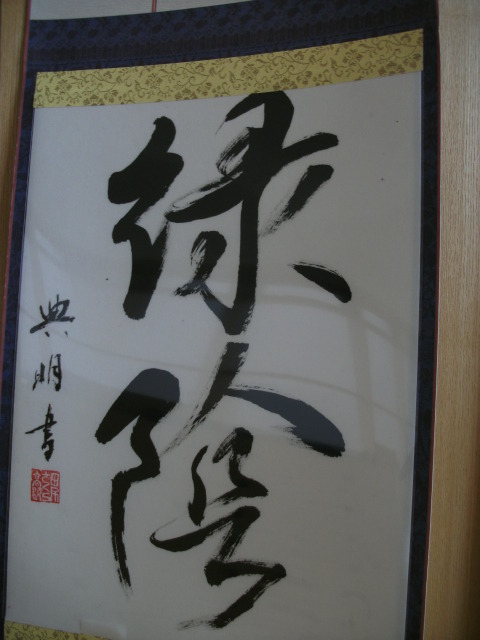 緑陰
典明書